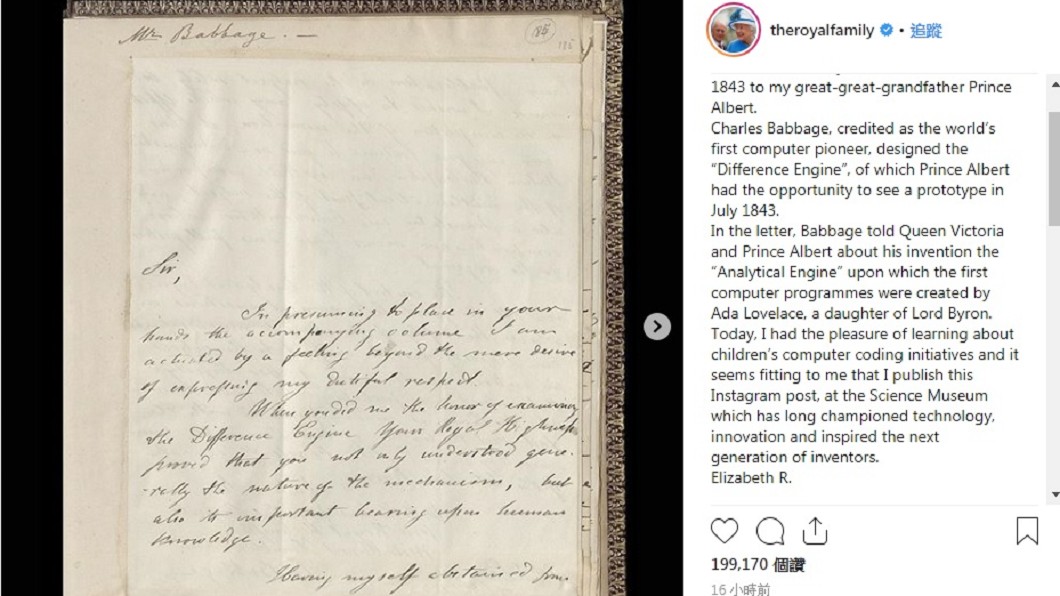 Mr Babbage. —
185
185
Sir,
In presuming to place in your
hands the accompanying volume I am
actuated by a feeling beyond the mere desire
of expressing my dutiful respect.
When you did me the honor of examining
the Difference Engine Your Royal Highness
proved that you not only understood gene-
-rally the nature of the mechanism, but
also its important bearing upon human
knowledge.
Having myself obtained from
theroyalfamily • 追蹤
1843 to my great-great-grandfather Prince
Albert.
Charles Babbage, credited as the world's
first computer pioneer, designed the
“Difference Engine”, of which Prince Albert
had the opportunity to see a prototype in
July 1843.
In the letter, Babbage told Queen Victoria
and Prince Albert about his invention the
“Analytical Engine” upon which the first
computer programmes were created by
Ada Lovelace, a daughter of Lord Byron.
Today, I had the pleasure of learning about
children's computer coding initiatives and it
seems fitting to me that I publish this
Instagram post, at the Science Museum
which has long championed technology,
innovation and inspired the next
generation of inventors.
Elizabeth R.
199,170 個讚
16 小時前